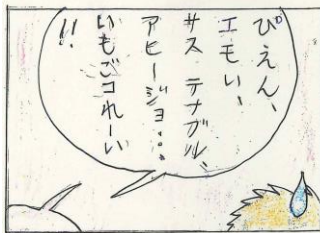 ぴえん、
エモい、
サステナブル、
アヒージョ…
いもごコれーい
!!